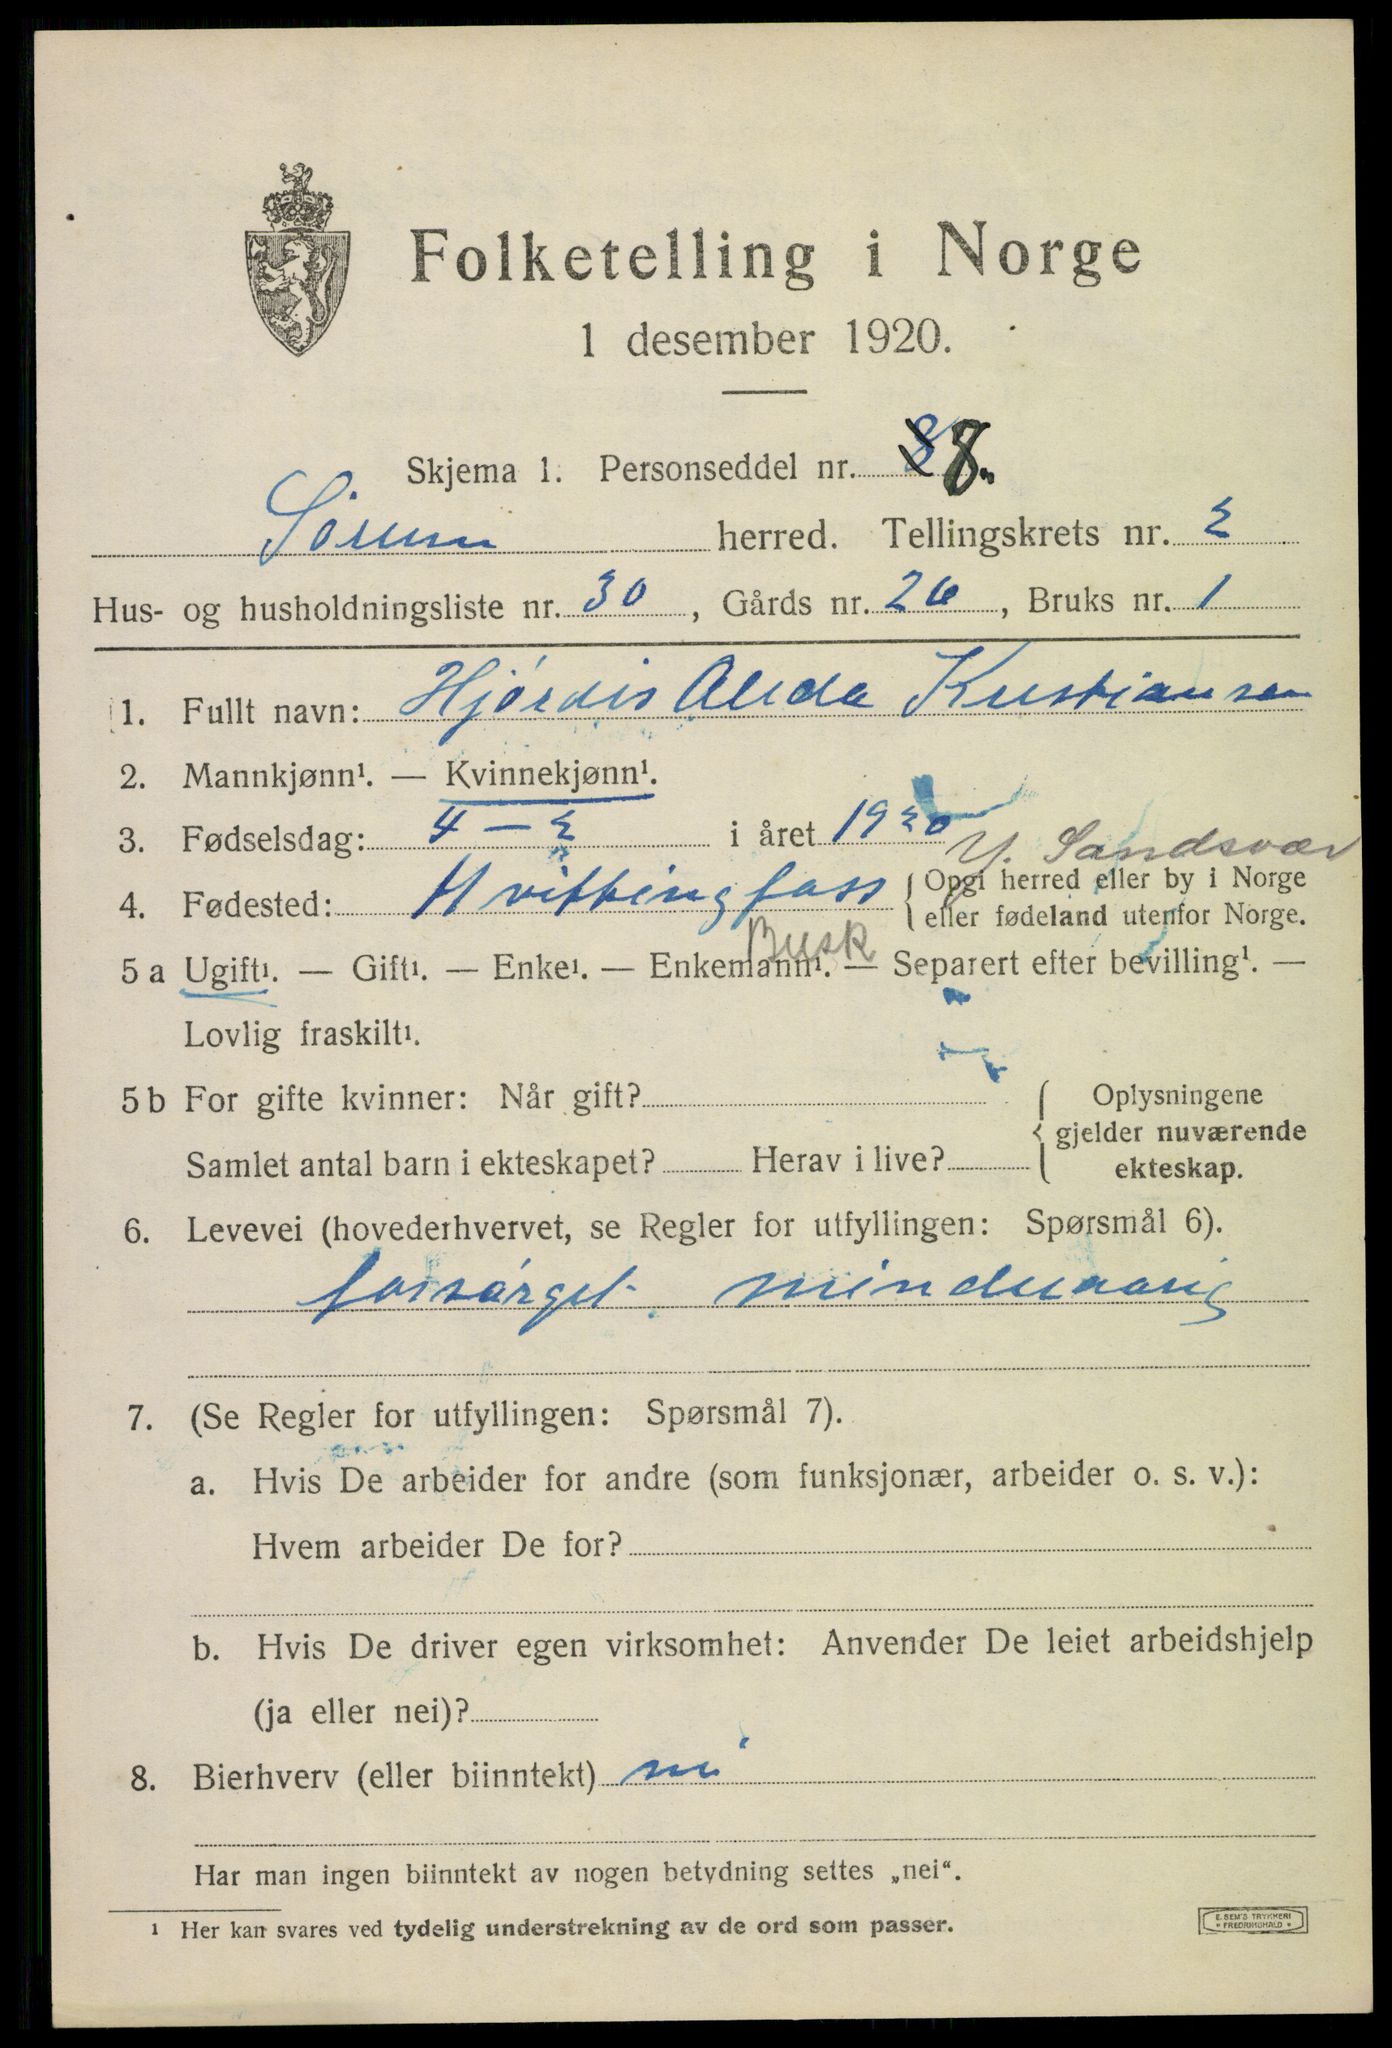 Folketelling i Norge
1 desember 1920.
Skjema 1. Personseddel nr. 8 8.
Sörum herred. Tellingskrets nr. 2
Hus- og husholdningsliste nr. 30, Gårds nr. 26, Bruks nr. 1
1. Fullt navn: Hjördis Alida Kristiansen
2. Mannkjønn¹. — Kvinnekjønn¹.
3. Fødselsdag: 4 – 2 i året 1920
Y. Sandsvær
4. Fødested: Hvittingfoss { Opgi herred eller by i Norge
eller fødeland utenfor Norge.
Busk
5 a Ugift¹. — Gift¹. — Enke¹. — Enkemann¹. — Separert efter bevilling¹. —
Lovlig fraskilt¹.
5 b For gifte kvinner: Når gift?
Samlet antal barn i ekteskapet? Herav i live?
Oplysningene
gjelder nuværende
ekteskap.
6. Levevei (hovederhvervet, se Regler for utfyllingen: Spørsmål 6).
forsörget. minduaarig
7. (Se Regler for utfyllingen: Spørsmål 7).
a. Hvis De arbeider for andre (som funksjonær, arbeider o. s. v.):
Hvem arbeider De for?
b. Hvis De driver egen virksomhet: Anvender De leiet arbeidshjelp
(ja eller nei)?
8. Bierhverv (eller biinntekt) nei
Har man ingen biinntekt av nogen betydning settes „nei“.
¹ Her kan svares ved tydelig understrekning av de ord som passer.
E. SEM'S TRYKKERI
* FREDRIKSHALD *